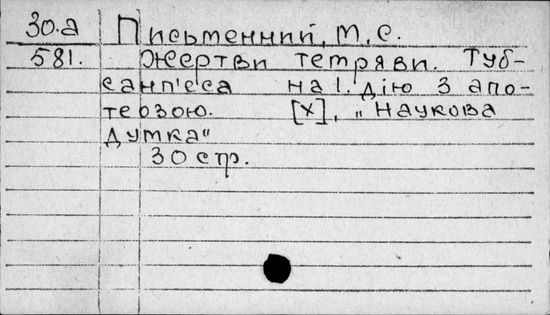 30.а Письменний, М. С.
581. Жертви темряви. Туб-
санп'єса на 1. дію з апо-
теозою. [Х], „Наукова
думка"
30 стр.